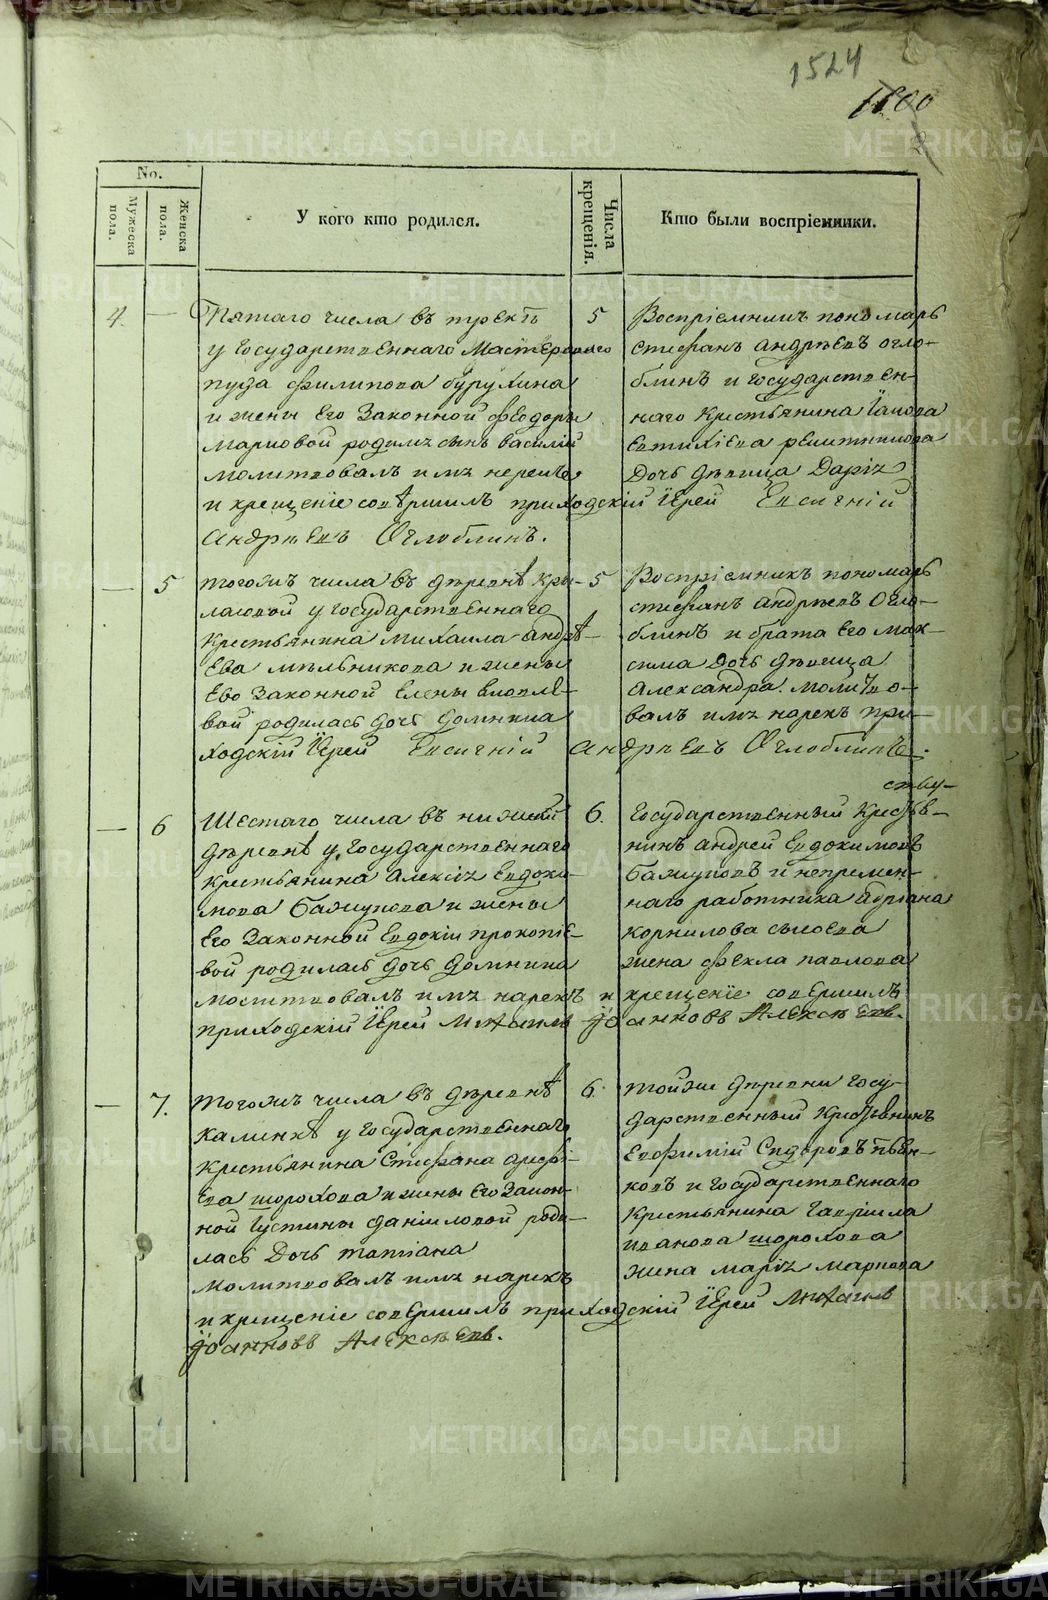 1524
1600
2
No.
Мужеска пола.
Женска пола.
У кого кто родился.
Числа крещенія.
Кто были воспріемники.
4. — Пятаго числа въ
у Государственнаго Мастероваго
филипова бурухина
и жены Его Законной Феодоры
Марковой родился сынъ Василій
молитвовалъ имя нарекъ
и крещеніе совершилъ приходскій Іерей Евсигній
Андреевъ Оглоблинъ.
5 Воспріемникъ пономарь
стефанъ андреевъ огло-
блинъ и государствен-
наго крестьянина Іакова
Евтихіева решетникова
Дочь девица Дарія
— 5 тогожъ числа въ деревнѣ Кры-
ласовой у государственнаго
Крестьянина михаила андрѣ-
Ева мельникова и жены
Ево Законной Елены
вой родилась дочь домника
ходскій Іерей Евсигній Андреевъ Оглоблинъ.
5 Воспріемникъ пономарь
стефанъ андреевъ Огло-
блинъ и брата Его мак-
сима Дочь девица
Александра. молитво-
валъ имя нарекъ при-
— 6 Шестаго числа въ нижней
деревнѣ у Государственнаго
крестьянина Алексія Евдоки-
мова Бажукова и жены
Его Законной Евдокіи прокопіе-
вой родилась дочь домника
молитвовалъ имя нарекъ и крещеніе совершилъ
приходскій Іерей Михаилъ Іоанновъ Алексѣевъ.
6. Государственный Крестья-
нинъ андрей Евдокимовъ
Бажуковъ и непремен-
наго работника Адріана
корнилова сысоева
жена фекла павлова
— 7. тогожъ числа въ деревнѣ
Калинкѣ у государственнаго
крестьянина Стефана
Ева шорохова и жены Его Закон-
ной Іустины даніиловой роди-
лась Дочь татіана
молитвовалъ имя нарекъ
и крещеніе совершилъ приходскій Іерей Михаилъ
Іоанновъ Алексѣевъ.
6. тойже деревни госу-
дарственный крестьянинъ
Евфимій Сидоровъ пьян-
ковъ и государственнаго
крестьянина Гавріила
иванова шорохова
жена марія маркова
METRIKI.GASO-URAL.RU